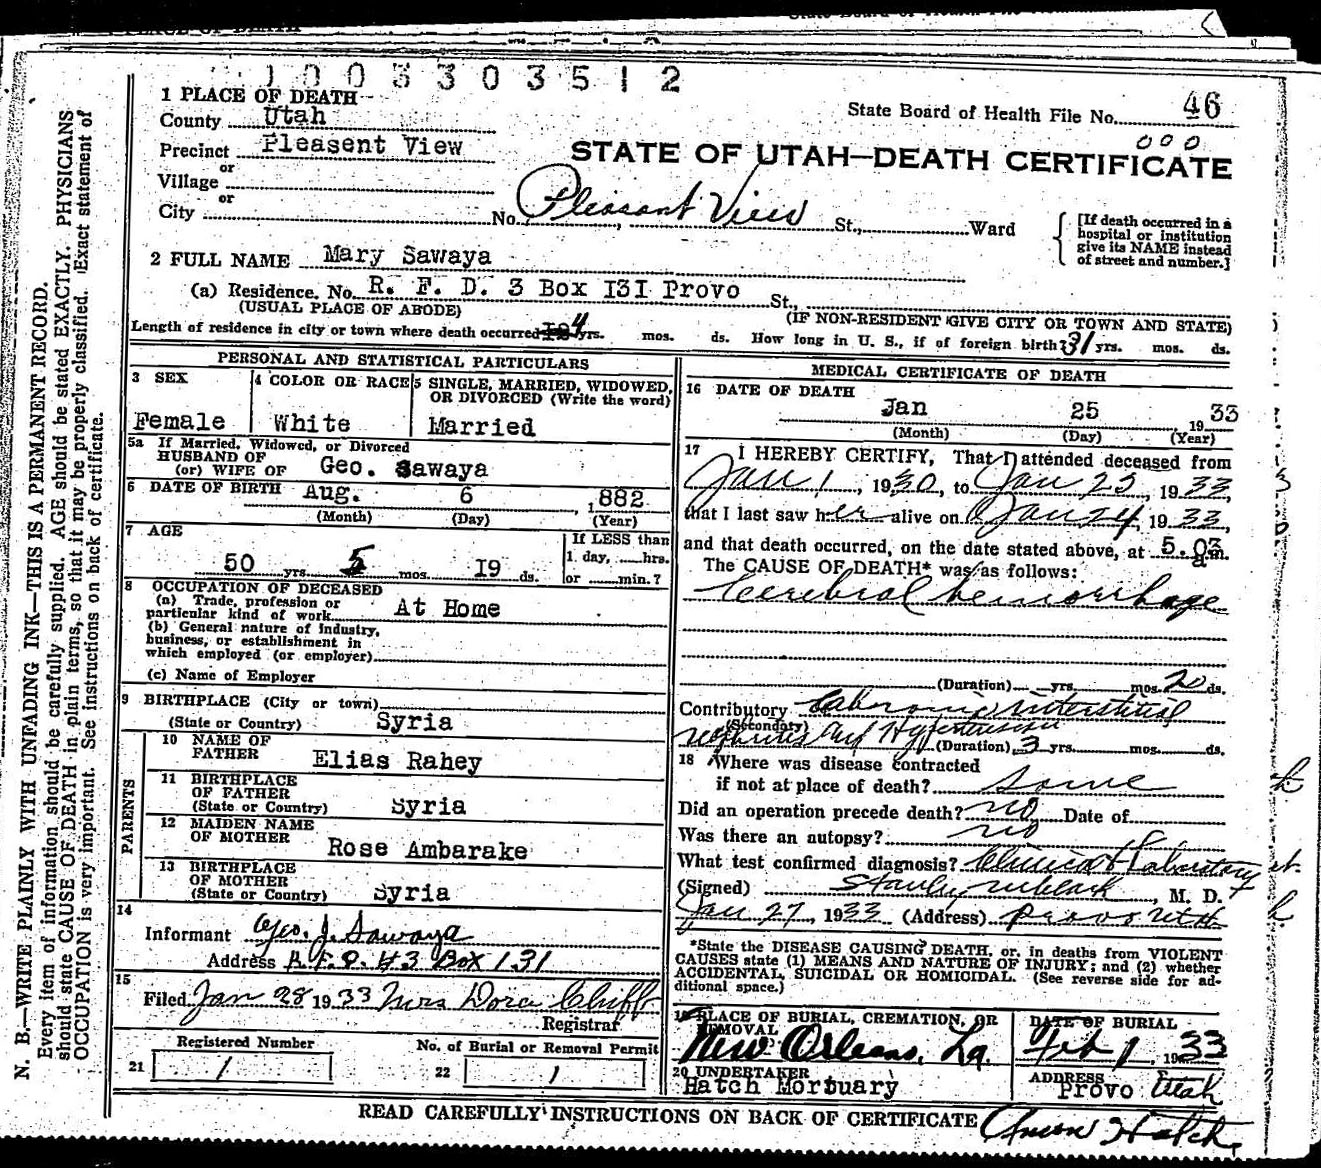 1003303512
1 PLACE OF DEATH
State Board of Health File No. 46
County Utah
000
Precinct Pleasent View
STATE OF UTAH—DEATH CERTIFICATE
or
Village
or
City No. Pleasant View St., Ward
[If death occurred in a hospital or institution give its NAME instead of street and number.]
2 FULL NAME Mary Sawaya
(a) Residence. No. R. F. D. 3 Box I3I Provo St.,
(USUAL PLACE OF ABODE) (IF NON-RESIDENT GIVE CITY OR TOWN AND STATE)
Length of residence in city or town where death occurred 4 yrs. mos. ds. How long in U. S., if of foreign birth? 31 yrs. mos. ds.
PERSONAL AND STATISTICAL PARTICULARS
3 SEX 4 COLOR OR RACE 5 SINGLE, MARRIED, WIDOWED, OR DIVORCED (Write the word)
Female White Married
5a If Married, Widowed, or Divorced
HUSBAND OF
(or) WIFE OF Geo. Sawaya
6 DATE OF BIRTH Aug. 6, 1882
(Month) (Day) (Year)
7 AGE If LESS than
1 day, hrs.
50 yrs. 5 mos. I9 ds. or min.?
8 OCCUPATION OF DECEASED
(a) Trade, profession or
particular kind of work At Home
(b) General nature of industry,
business, or establishment in
which employed (or employer)
(c) Name of Employer
9 BIRTHPLACE (City or town)
(State or Country) Syria
PARENTS
10 NAME OF
FATHER Elias Rahey
11 BIRTHPLACE
OF FATHER
(State or Country) Syria
12 MAIDEN NAME
OF MOTHER Rose Ambarake
13 BIRTHPLACE
OF MOTHER
(State or Country) Syria
14
Informant Geo. J. Sawaya
Address R.F.D. #3 Box 131
15
Filed Jan 28 1933 Mrs Dora
Registrar
Registered Number No. of Burial or Removal Permit
21 1 22 1
MEDICAL CERTIFICATE OF DEATH
16 DATE OF DEATH
Jan 25 1933
(Month) (Day) (Year)
17 I HEREBY CERTIFY, That I attended deceased from
Jan 1, 1930, to Jan 25, 1933,
that I last saw her alive on Jan 24, 1933,
and that death occurred, on the date stated above, at 5.03 a.m.
The CAUSE OF DEATH* was as follows:
Cerebral hemorrhage
(Duration) yrs. mos. 20 ds.
Contributory Chronic interstitial
(Secondary)
nephritis and Hypertension (Duration) 3 yrs. mos. ds.
18 Where was disease contracted
if not at place of death? Same
Did an operation precede death? no Date of
Was there an autopsy? no
What test confirmed diagnosis? Clinical & Laboratory
(Signed) Stanley M Clark, M. D.
Jan 27, 1933 (Address) Provo Utah
*State the DISEASE CAUSING DEATH, or, in deaths from VIOLENT
CAUSES state (1) MEANS AND NATURE OF INJURY; and (2) whether
ACCIDENTAL, SUICIDAL OR HOMICIDAL. (See reverse side for ad-
ditional space.)
19 PLACE OF BURIAL, CREMATION, OR REMOVAL DATE OF BURIAL
New Orleans, La. Feb 1, 1933
20 UNDERTAKER ADDRESS
Hatch Mortuary Provo Utah
READ CAREFULLY INSTRUCTIONS ON BACK OF CERTIFICATE
N. B.—WRITE PLAINLY WITH UNFADING INK—THIS IS A PERMANENT RECORD.
Every item of information should be carefully supplied. AGE should be stated EXACTLY. PHYSICIANS
should state CAUSE OF DEATH in plain terms, so that it may be properly classified. Exact statement of
OCCUPATION is very important. See instructions on back of certificate.